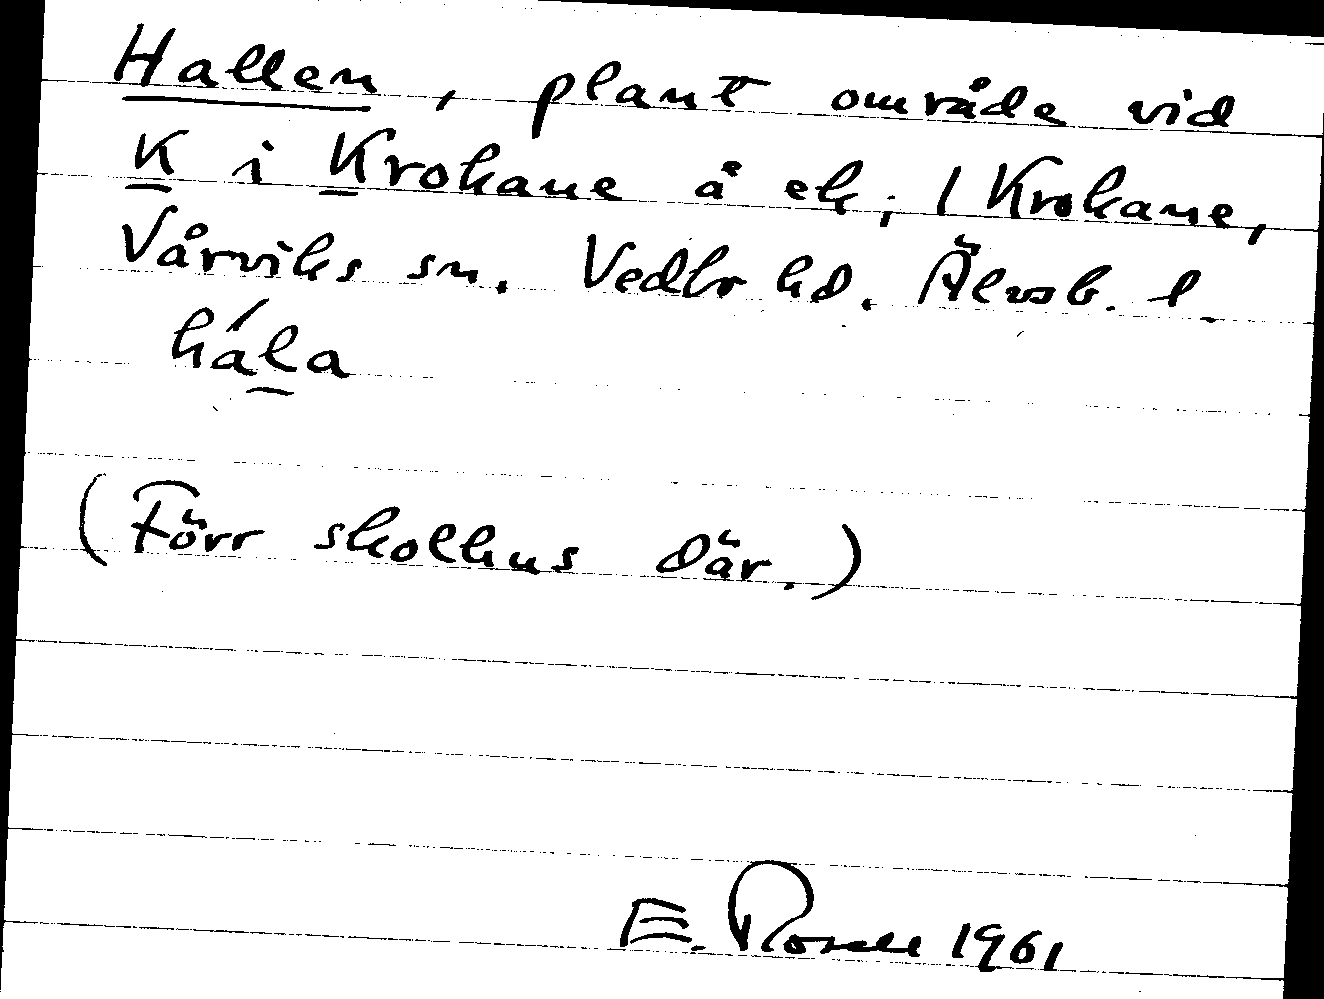 Hallen, plant område vid
K i Krokane å ek; 1 Krokane,
Vårviks sn. Vedbo hd. Älvsb. l.
hála
(Förr skolhus där.)
E. Rosell 1961